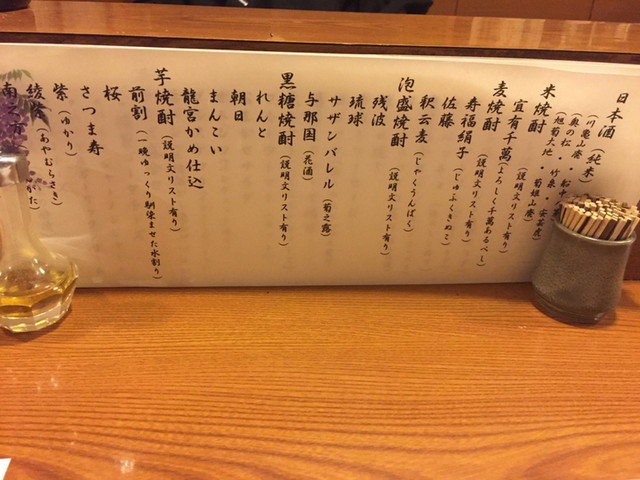 日本酒（純米）
（川亀山廃・船中
奥の松・竹泉・安芸虎
旭菊大地・菊姫山廃）
米焼酎（説明文リスト有り）
宜有千萬（よろしく千萬あるべし）
麦焼酎（説明文リスト有り）
寿福絹子（じゅふくきぬこ）
佐藤
釈云麦（じゃくうんばく）
泡盛焼酎（説明文リスト有り）
残波
琉球
サザンバレル（菊之露）
与那国（花酒）
黒糖焼酎（説明文リスト有り）
れんと
朝日
まんこい
龍宮かめ仕込
芋焼酎（説明文リスト有り）
前割（一晩ゆっくり馴染ませた水割り）
桜
さつま寿
紫（ゆかり）
綾紫（あやむらさき）
南之方